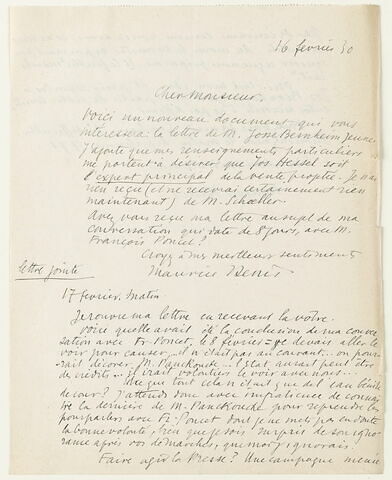 16 février 30
Cher Monsieur,
Voici un nouveau document qui vous
intéressera: la lettre de M. Josse Bernheim Jeune.
J'ajoute que mes renseignements particuliers
me portent à désirer que Jos. Hessel soit
l'expert principal de la vente projetée. Je n'ai
rien reçu (et ne recevrai certainement rien
maintenant) de M. Schoeller.
Avez vous reçu ma lettre au sujet de ma
conversation qui date de 8 jours, avec M.
François Poncet?
Croyez à mes meilleurs sentiments
Maurice Denis
lettre jointe
17 février. Matin
Je rouvre ma lettre en recevant la vôtre.
Voici quelle avait été la conclusion de ma conver
sation avec Fr. Poncet, le 8 février = je devais aller le
voir pour causer, il n'était pas au courant... on pour-
rait décorer M. Panckouke... l'Etat aurait peut être
des crédits... il irait volontiers le voir avec nous...
que tout cela n'était que de l'eau bénite
de cour? J'attends donc avec impatience de connaî
tre la dernière de M. Panckoucke pour reprendre les
pourparlers avec Fr. Poncet dont je ne mets pas en doute
la bonne volonté, bien que je sois surpris de son igno
rance après vos démarches, que moi j'ignorais.
Faire agir la Presse? Une campagne menée